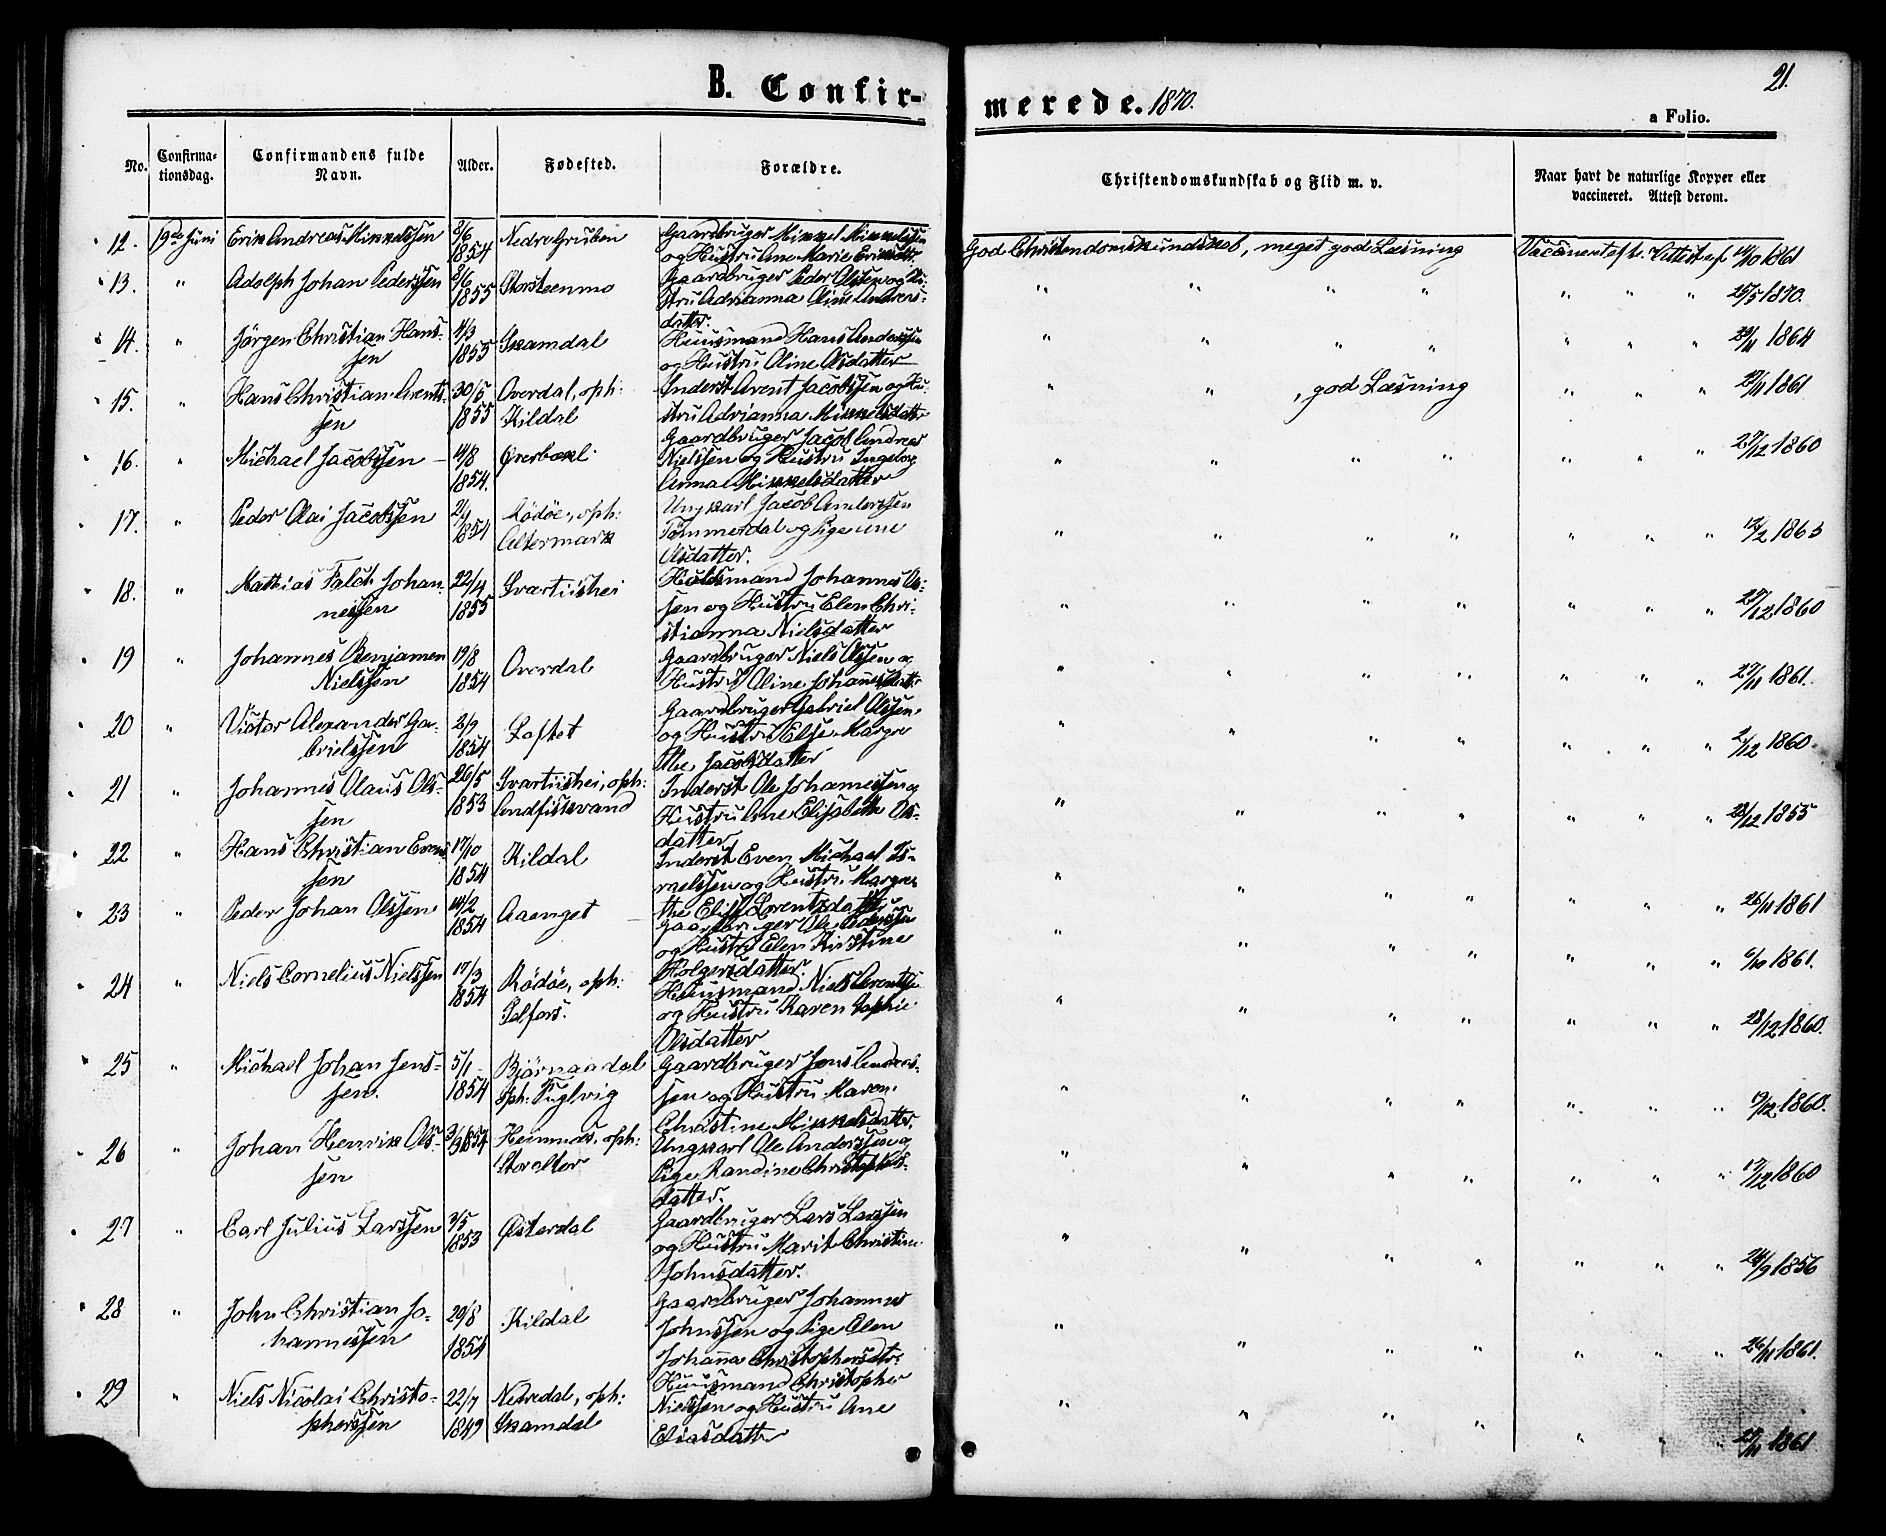 B. Confir-
merede. 1870.
21.
a Folio.
No.
Confirma-
tionsdag.
Confirmandens fulde
Navn.
Alder.
Fødested.
Forældre.
Christendomskundskab og Flid m. v.
Naar havt de naturlige Kopper eller
vaccineret. Attest derom.
12. 19de Juni Erik Andreas Mikkelssen 8/6 1854 Nedre Gruben
Gaardbruger Mikkel Mikkelssen
og Hustru Ane Marie
God Christendomskundskab, meget god Læsning
1861
13. " Adolph Johan Pederssen 8/6 1855 Storsteenmo
Gaardbruger Peder Olssen og Hu-
stru Adrianna Oline Anders-
datter.
" " " " " " " 25/5 1870.
14. " Jörgen Christian Hans-
sen 4/3 1855 Skamdal
Huusmand Hans Anderssen
og Hustru Oline Olsdatter
" " " " " " " 1864
15. " Hans Christian Arents-
sen 30/5 1855 Overdal, oph:
Kildal
Inderst Arent Jacobssen og Hu-
stru Adrianna Mikkelsdatter
" " , god Læsning " " " 1861
16. " Michael Jacobssen 14/8 1854.
Gaardbruger Jacob Andreas
Nielssen og Hustru Ingeborg
Anna Mikkelsdatter
" " " " " " " 27/12 1860
17. " Peder Olai Jacobssen 1854 Rödöe, oph:
Altermark
Ungkarl Jacob Anderssen
Tömmerdal og Pige
Olsdatter.
" " " " " " "
18. " Mathias Falch Johan-
nessen 22/4 1855 Svartiishei
Huusmand Johannes Ols-
sen og Hustru Elen Chri-
stianna Nielsdatter
" " " " " " " 27/12 1860
19 " Johannes Benjamen
Nielssen 19/8 1854 Overdal
Gaardbruger Niels Olssen og
Hustru Oline Johannesdatt:
" " " " " " " 27/11 1861.
20 " Victor Alexander Ga-
brielssen 2/9 1854 Loftet
Gaardbruger Gabriel Olssen
og Hustru Else Margre
the Jacobsdatter
" " " " " " " 2/12 1860.
21 " Johannes Olaus Ols-
sen 26/5 1853 Svartiishei, oph:
Andfiskvand
Inderst Ole Johannessen og
Hustru Ane Elisabeth Ols-
datter
" " " " " " " 28/12 1855
22 " Hans Christian Evens
sen 17/10 1854 Kildal
Inderst Even Michael Is-
raelssen og Hustru Margre-
the Elis. Lorentzdatter
" " " " " " " 26/11 1861
23 " Peder Johan Olssen 14/2 1854 Aaenget
Gaardbruger Ole Pederssen
og Hustru Elen Kirstine
Holgersdatter.
" " " " " " " 6/10 1861.
24 " Niels Cornelius Nielssen 17/3 1854 Rödöe, oph:
Selfors.
Huusmand Niels Arentss.
og Hustru Karen Sophie
Olsdatter
" " " " " " " 28/12 1860.
25 " Michael Johan Jens-
sen. 5/1 1854 Bjørnaadal
oph: Fuglvig
Gaardbruger Jens Anders-
sen og Hustru Maren
Christine Mikkelsdatter.
" " " " " " " 19/12 1860.
26 " Johan Henrik Ols-
sen 1854 Hemnæs, oph:
Storalter
Ungkarl Ole Anderssen og
Pige Randine Christophers-
datter.
" " " " " " " 17/12 1860
27 " Carl Julius Larssen 3/5 1853 Østerdal
Gaardbruger Lars Larssen
og Hustru Marit Christine
Johnsdatter.
" " " " " " " 24/9 1856
28 " John Christian Jo-
hannessen 29/8 1854 Kildal
Gaardbruger Johannes
Johnssen og Pige Olen
Johanna Christophersdtr:
" " " " " " " 26/11 1861.
29 " Niels Nicolai Christo-
pherssen 22/7 1849 Nesredal, oph:
Skamdal
Huusmand Christopher
Nielssen og Hustru Ane
Eliasdatter
" " " " " " " 27/11 1861